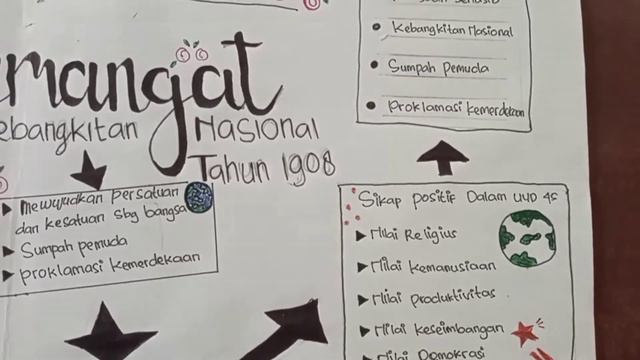 Kebangkitan Nasional
Sumpah Pemuda
Proklasmasi kemerdekaan
mangat
ebangkitan Nasional
Tahun 1908
mewujudkan persatuan
dan kesatuan sbg bangsa
Sumpah pemuda
proklamasi kemerdekaan
Sikap positif Dalam UUD 45
Nilai Religius
Nilai kemanusiaan
Nilai produktivitas
Nilai keseimbangan
Nilai Demokrasi